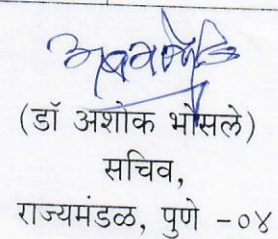 (डॉ अशोक भोसले)
सचिव,
राज्यमंडळ, पुणे -०४